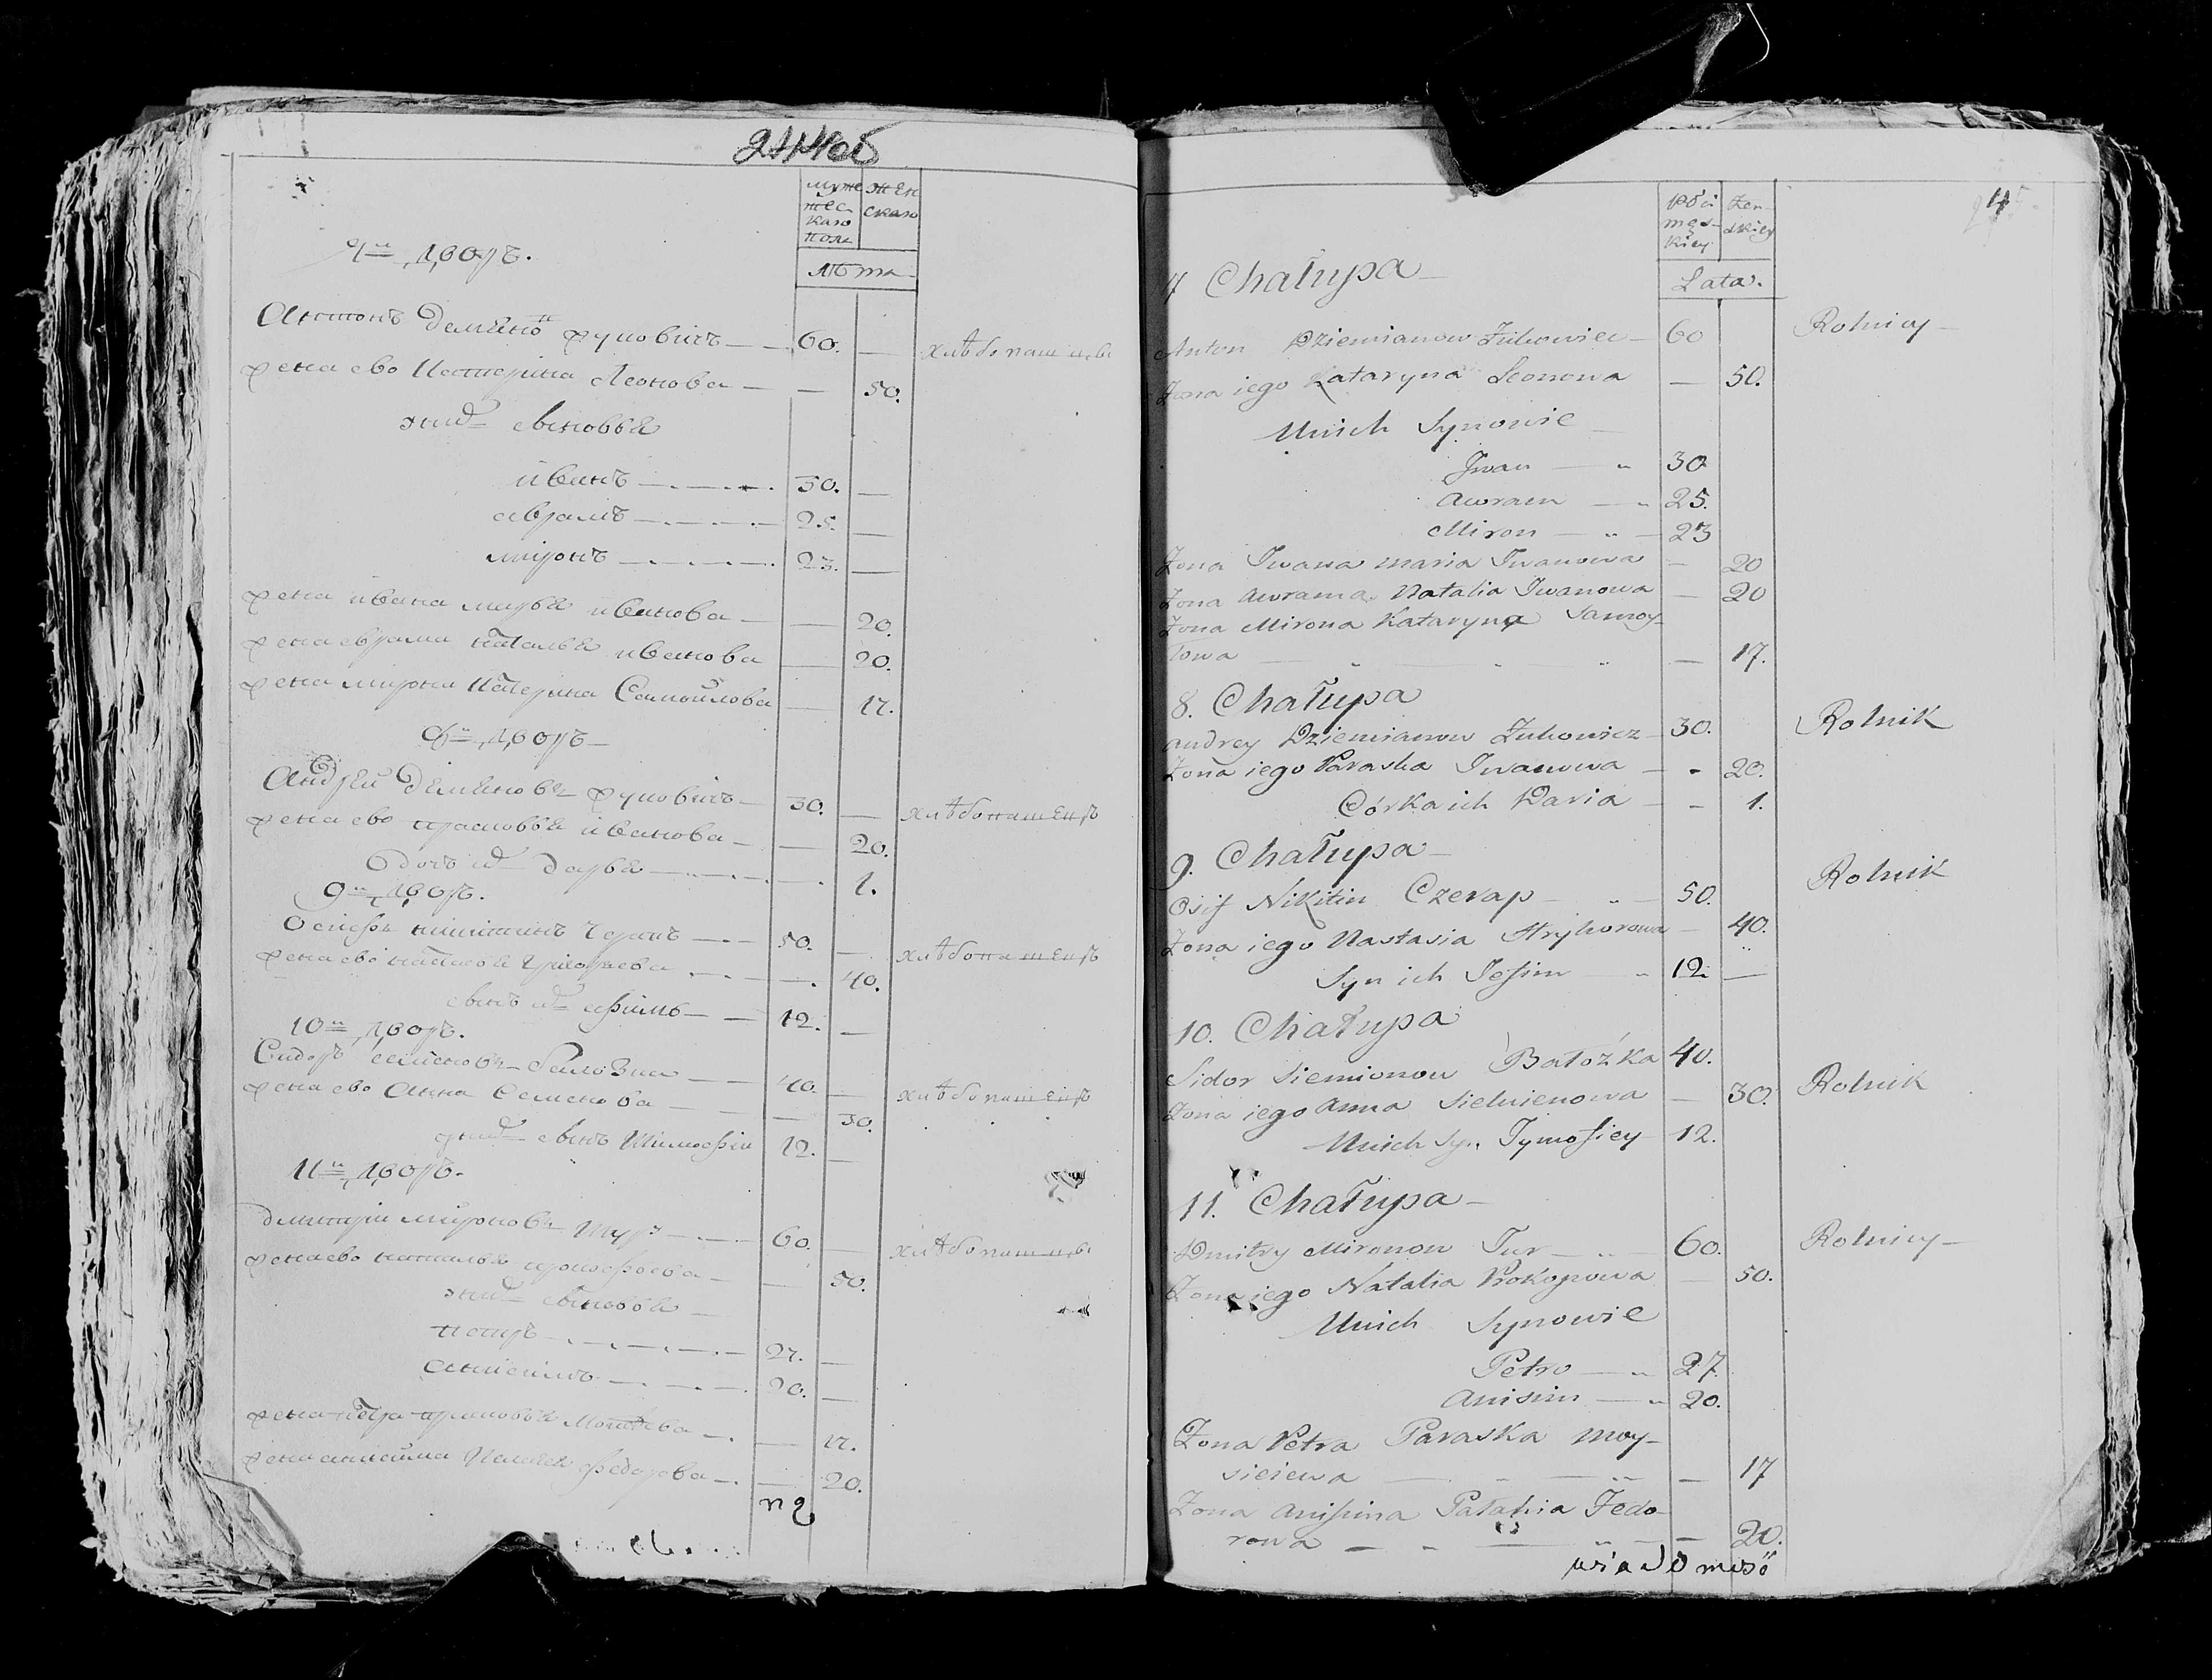 7й дворъ.
муже
жес
каго
пола
жен
скаго
лѣта
Антонъ Деменовъ Жуковичь — 60. — хлѣбопашцы
жена ево Катерина Леонова — — 50.
у нихъ сыновья
иванъ — 30. —
аврамъ — 25. —
миронъ — 23. —
жена ивана марья иванова — — 20.
жена аврама наталья иванова — 20.
жена мирона Катерина Самойлова — 17.
8й дворъ —
Андрей Деменовъ Жуковичь — 30. — хлѣбопашецъ
жена ево прасковья иванова — — 20.
дочь их дарья — 1.
9й дворъ.
Осипъ никитинъ Черапъ — 50. — хлѣбопашецъ
жена ево настасья григорьева — 40.
сынъ их ефимъ — 12. —
10й дворъ.
Сидоръ семеновъ балозка — 40. — хлѣбопашецъ
жена ево Анна Семенова — — 30.
у них сынъ Тимофей 12. —
11й дворъ.
дмитрей мироновъ Туръ — 60. — хлѣбопашцы
жена ево наталья прокофьева — — 50.
у них сыновья —
петръ — 27. —
анисимъ — 20. —
жена петра прасковья Мосеева — 17.
жена анисима Пелагея федорова — 20.
Płci
męs-
kiey
Żen-
skiey
Lata.
7 Chałupa —
Anton Dziemianow Żukowicz — 60 Rolnicy —
Żona iego Kataryna Leonowa — 50.
Unich Synowie —
Iwan — „ 30
Awram — „ 25.
Miron — „ — 23
Żona Iwana maria Iwanowa — 20
Żona Awrama Natalia Iwanowa — 20
Żona Mirona Kataryna Samoy-
łowa — „ — „ — 17.
8. Chałupa
Andrey Dziemianow Żukowicz — 30. Rolnik
Żona iego Paraska Iwanowa — - 20.
Córka ich Daria — - 1.
9. Chałupa —
Osif Nikitin Czerap — „ — 50. Rolnik
Żona iego Nastasia Hryhorowa — 40.
Syn ich Jefim — „ 12. —
10. Chałupa
Sidor Siemionow Bałożka 40. Rolnik
Żona iego Anna Siemienowa — 30.
Unich Syn Tymofiey — 12.
11. Chałupa —
Dmitry Mironow Tur — „ — 60. Rolnicy —
Żona iego Natalia Prokopowa — 50.
Unich Synowie
Petro — „ 27.
Anisim — „ 20.
Żona Petra Paraska Moy-
sieiewa — „ — „ — 17
Żona Anisima Pałahia Fedo-
rowa — „ — „ — 20.